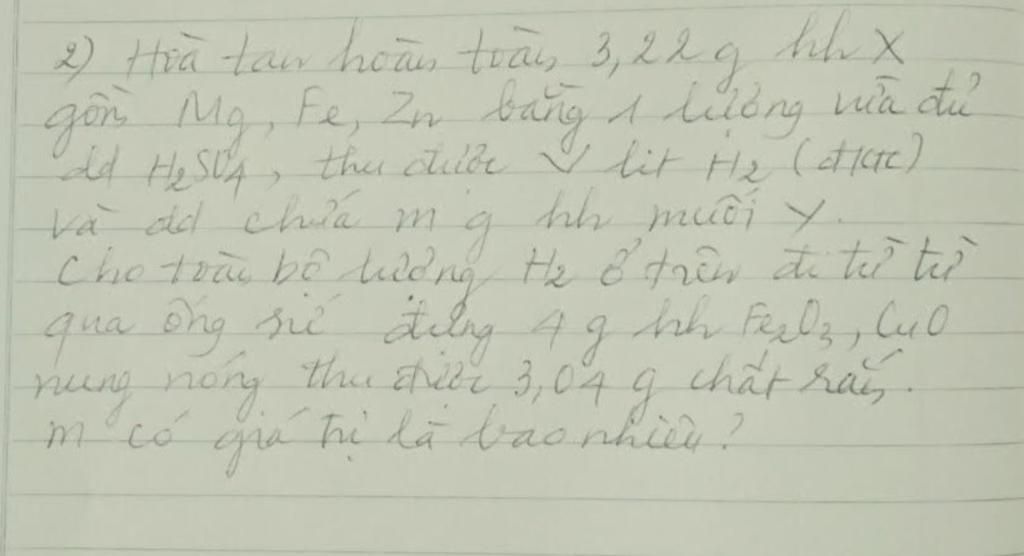 2) Hoà tan hoàn toàn 3,22g hh X
gồm Mg, Fe, Zn bằng 1 lượng vừa đủ
dd H₂SO₄, thu được V lít H₂ (đktc)
và dd chứa m g hh muối Y.
Cho toàn bộ lượng H₂ ở trên đi từ từ
qua ống sứ đựng 4g hh Fe₂O₃, CuO
nung nóng thu được 3,04 g chất rắn.
m có giá trị là bao nhiêu?